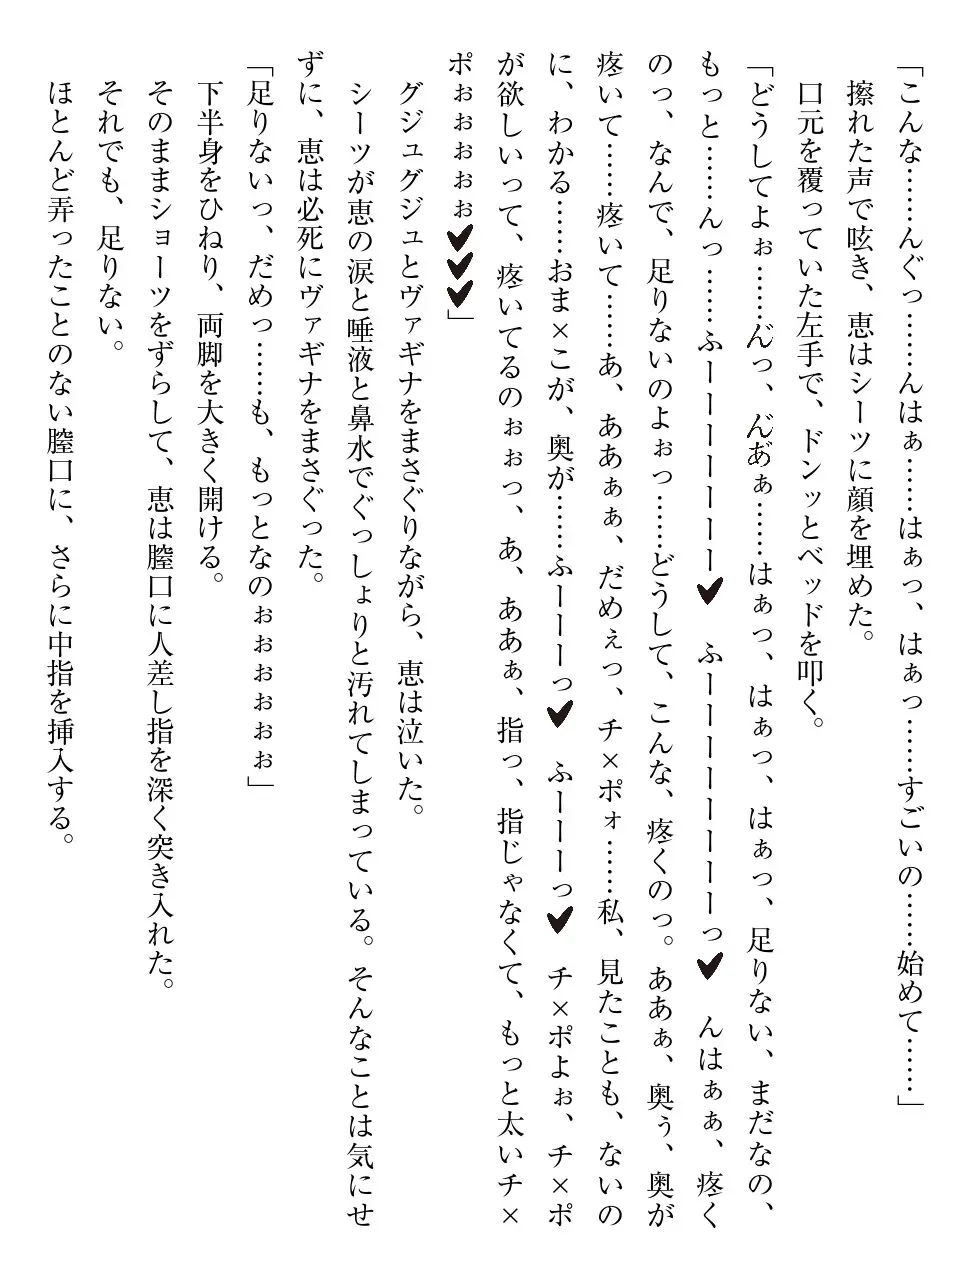 「こんな……んぐっ……んはぁ……はぁっ、はぁっ……すごいの……始めて……」
擦れた声で呟き、恵はシーツに顔を埋めた。
口元を覆っていた左手で、ドンッとベッドを叩く。
「どうしてよぉ……ん゛っ、ん゛あ゛ぁ……はぁっ、はぁっ、はぁっ、足りない、まだなの、
もっと……んっ……ふーーーーーーー♥　ふーーーーーーーーーっ♥　んはぁぁ、疼く
のっ、なんで、足りないのよぉっ……どうして、こんな、疼くのっ。ああぁ、奥ぅ、奥が
疼いて……疼いて……あ、ああぁぁ、だめぇっ、チ×ポォ……私、見たことも、ないの
に、わかる……おま×こが、奥が……ふーーーっ♥　ふーーーっ♥　チ×ポよぉ、チ×ポ
が欲しいって、疼いてるのぉぉっ、あ、ああぁ、指っ、指じゃなくて、もっと太いチ×
ポぉぉぉぉぉ♥♥♥」
グジュグジュとヴァギナをまさぐりながら、恵は泣いた。
シーツが恵の涙と唾液と鼻水でぐっしょりと汚れてしまっている。そんなことは気にせ
ずに、恵は必死にヴァギナをまさぐった。
「足りないっ、だめっ……も、もっとなのぉぉぉぉぉぉ」
下半身をひねり、両脚を大きく開ける。
そのままショーツをずらして、恵は膣口に人差し指を深く突き入れた。
それでも、足りない。
ほとんど弄ったことのない膣口に、さらに中指を挿入する。